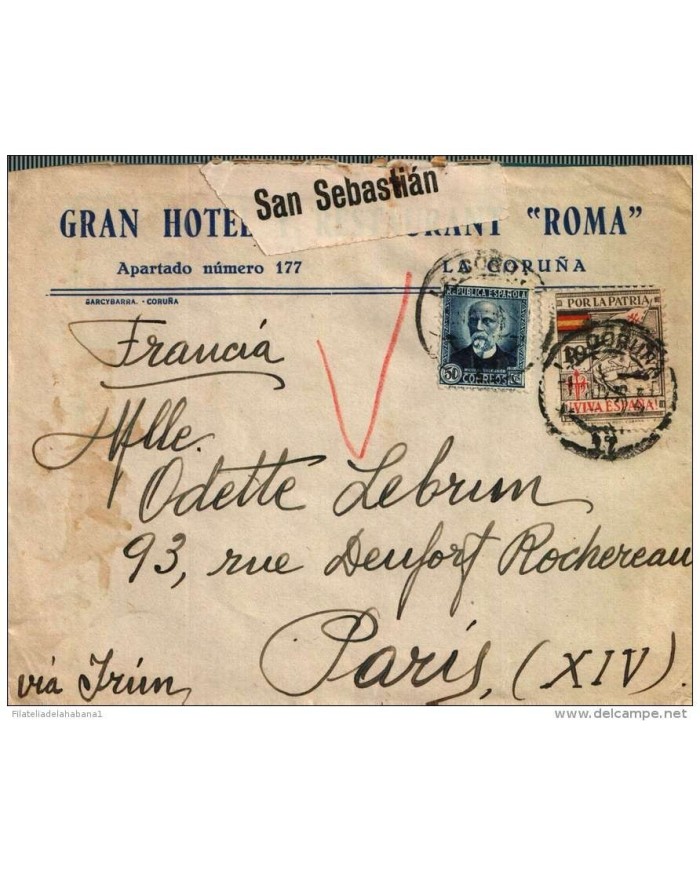 San Sebastián
GRAN HOTEL RESTAURANT "ROMA"
Apartado número 177 LA CORUÑA
SARCYBARRA. - CORUÑA
REPUBLICA ESPAÑOLA
50 CORREOS Cts
POR LA PATRIA
10
¡VIVA ESPAÑA!
CORUÑA
17
Francia
Mlle.
Odette Lebrun
93, rue Denfort Rochereau
París, (XIV).
vía Irún
Filateliadelahabana1
©www.delcampe.net